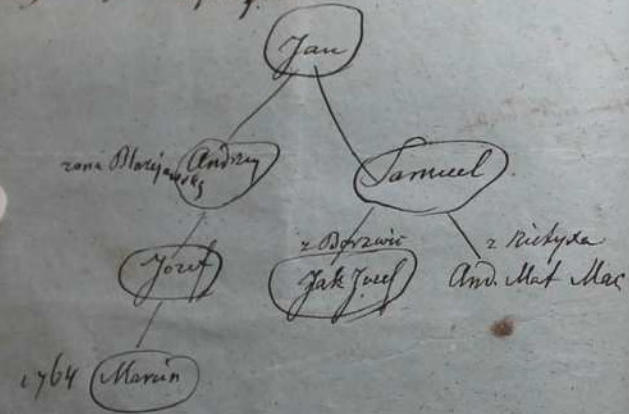 Jan
żona Błażejewską Andrzy
Samuel
Jozef
z Borzwic
Jak Jozef
And. Mat Mac
1764 Marcin